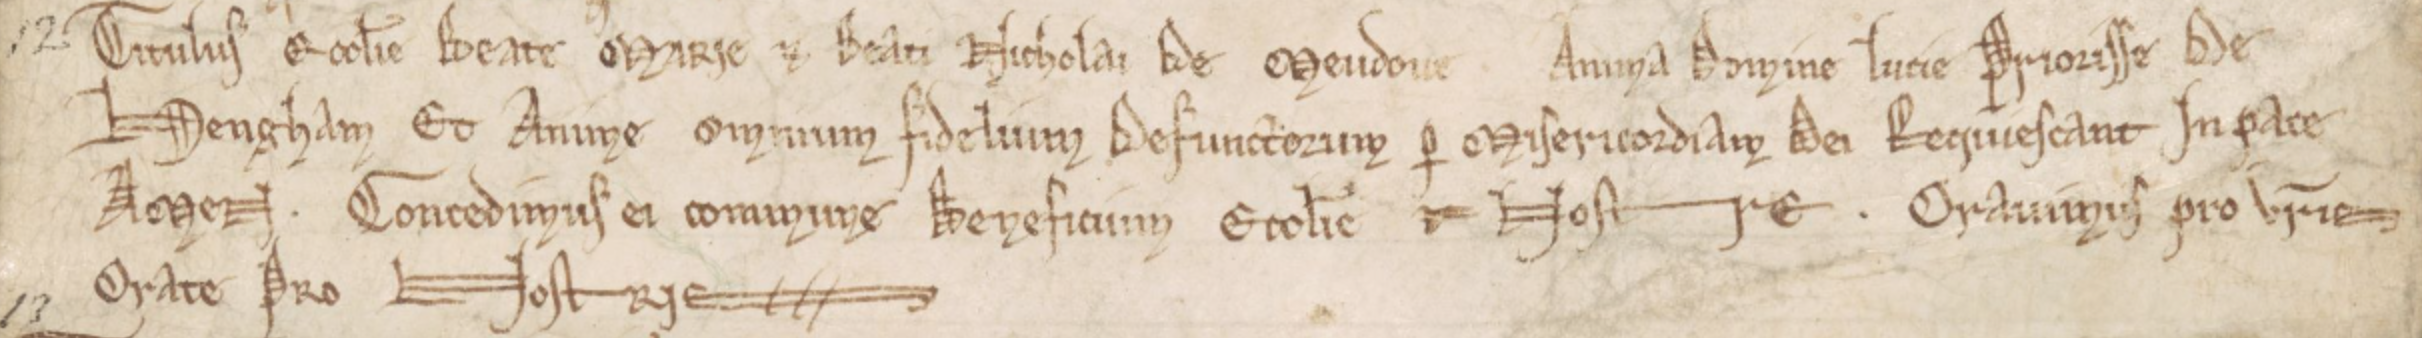 12 Titulus Ecclie Beate Marie & beati Nicholai de Mendone Anima domine lucie Priorisse de
Hengham Et Anime omnium fidelium defunctorum p Misericordiam dei Requiescant In pace
Amen. Concedimus ei commune Beneficium Ecclie Nostre. Oravimus pro vris
Orate Pro Nostris
13